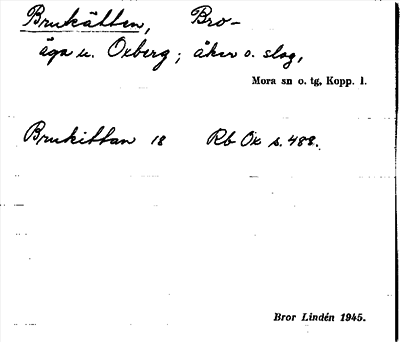 Brukätten, Bro-
äga u. Oxberg; åker o. slog,
Mora sn o. tg, Kopp. l.
Brukittan 18 Rb Ox s. 488.
Bror Lindén 1945.